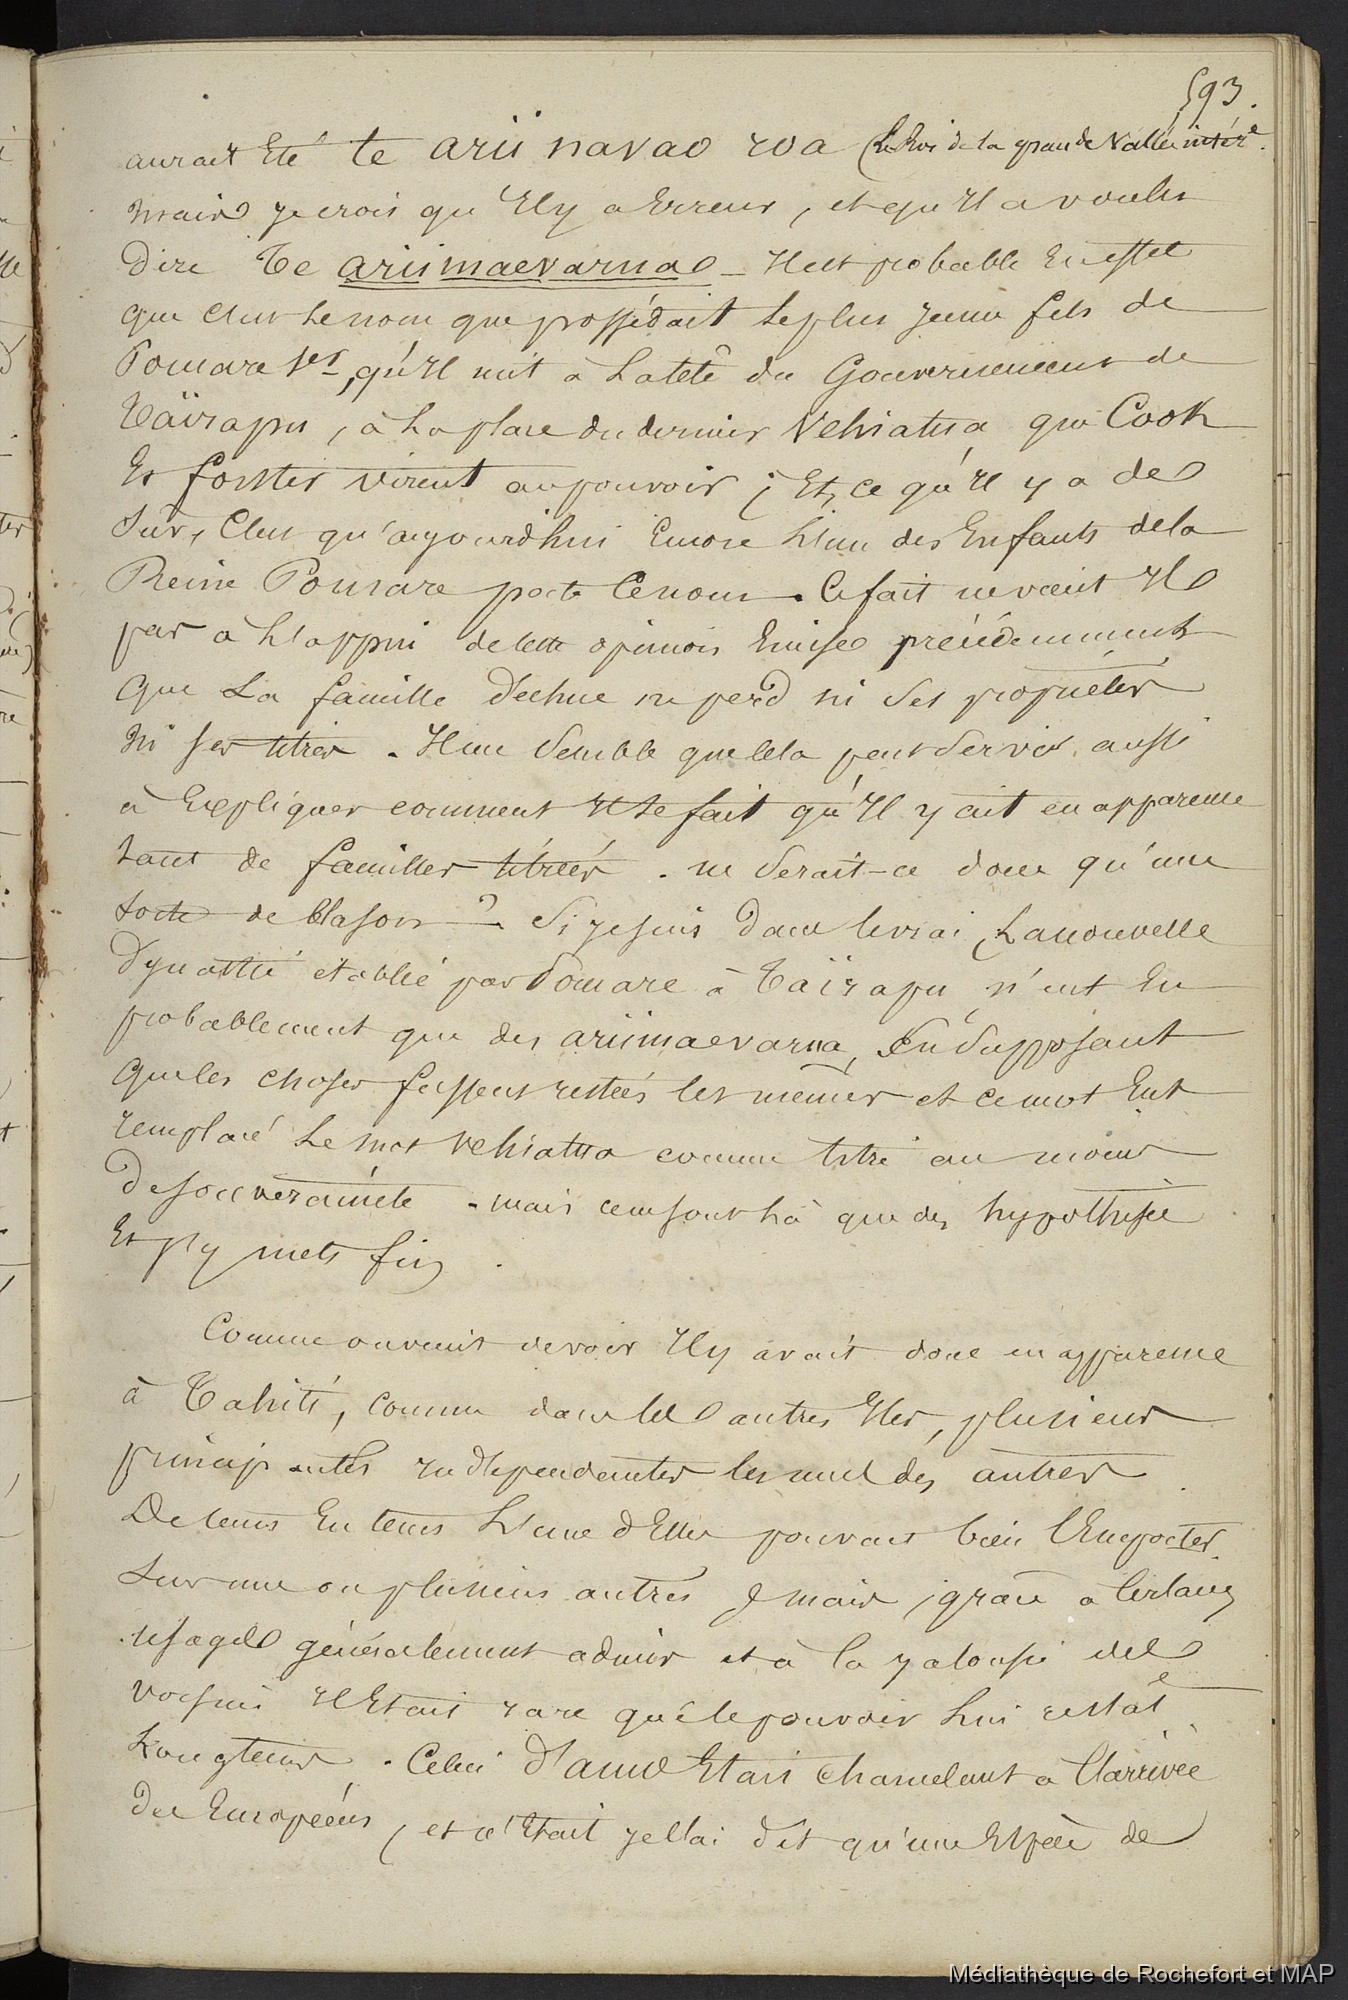 593.
aurait Eté te arii navao roa (le Roi de la grande Vallée intére.
mais je crois qu'Il y a Erreur, et qu'Il a voulu
dire Te ariimaevarua _ Il est probable En effet
que c'est le nom que possédait le plus jeune fils de
Pomare 1er, qu'Il mit à La tête du Gouvernement de
Taïrapu, à La place du dernier Vehiatua que Cook
Et forster virent au pouvoir ; Et, ce qu'Il y a de
Sûr, C'est qu'aujourd'hui Encore L'un des Enfants de la
Reine Pomare porte Ce nom. Ce fait ne vient Il
pas à L'appui de cette opinion Emise précédemment
que La famille déchue ne perd ni Ses propriétés
ni ses titres. Il me Semble que Cela peut Servir aussi
à Expliquer comment Il se fait qu'Il y ait en apparence
tant de familles titrées. ne Serait-ce donc qu'une
sorte de blason ? Si je suis dans le vrai, La nouvelle
dynastie établie par Pomare à Taïrapu, n'eut Eu
probablement que des ariimaevarua, En Supposant
que les choses fussent restées les mêmes et ce mot Eut
remplacé Le mot Vehiatua comme titre au moins
de souveraineté. mais ce ne sont Là que des hypothèses
Et j'y mets fin.
Comme on vient de voir Il y avait donc en apparence
à Tahiti, comme dans les autres Iles, plusieurs
principautés Indépendantes les unes des autres
De tems En tems L'une d'Elles pouvait bien l'Emporter
Sur une ou plusieurs autres ; mais, grâce à Certains
usages généralement admis et à la jalousie des
voisins Il Etait rare que le pouvoir Lui restât
Longtems. Celui d'amo Etait chancelant à l'arrivée
des Européens, et ce n'Etait je l'ai dit qu'une Espèce de
Médiathèque de Rochefort et MAP